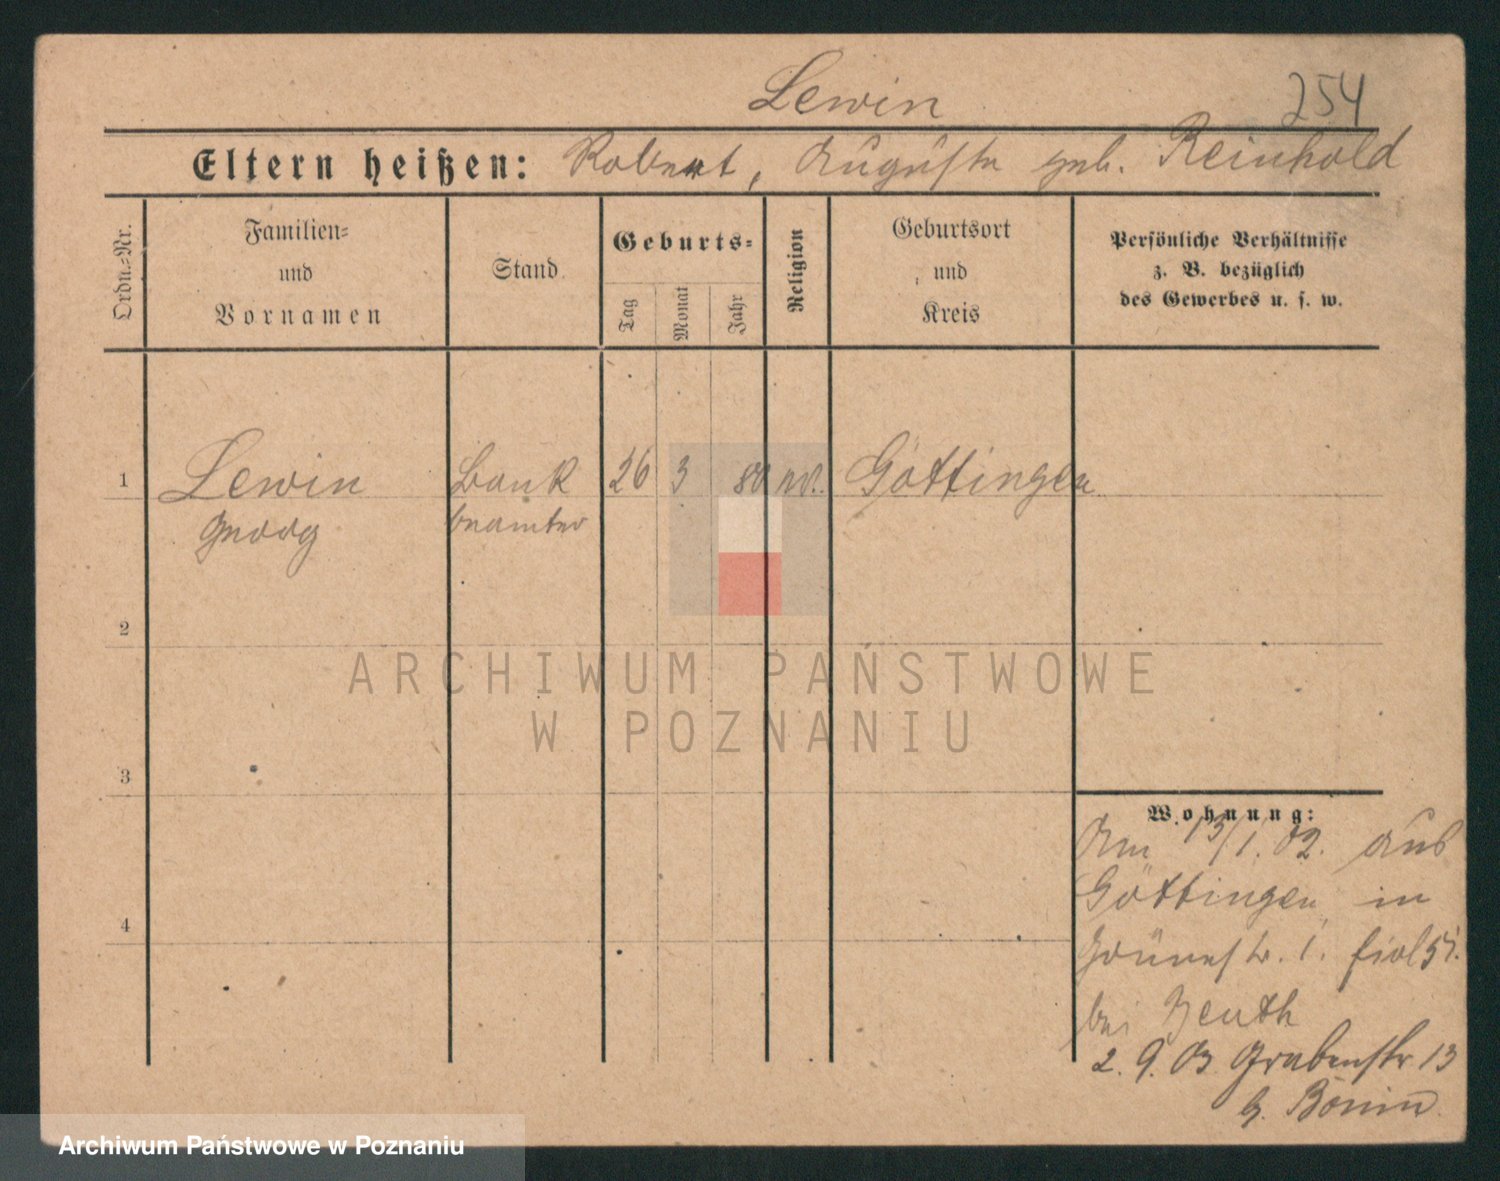 Lewin
254
Eltern heißen: Robert, Auguste geb. Reinhold
Ordn.-Nr.
Familien-
und
Vornamen
Stand
Geburts-
Tag
Monat
Jahr
Religion
Geburtsort
und
Kreis
Persönliche Verhältnisse
z. B. bezüglich
des Gewerbes u. s. w.
1 Lewin Bank 26 3 80 Göttingen
Georg beamter
2
ARCHIWUM PAŃSTWOWE
W POZNANIU
3
Wohnung:
Am 13/1.02. aus
4
Göttingen in
Grünestr. 1.
bei Zeuth
2. 9. 03 Grabenstr 13
b. Bonin
Archiwum Państwowe w Poznaniu